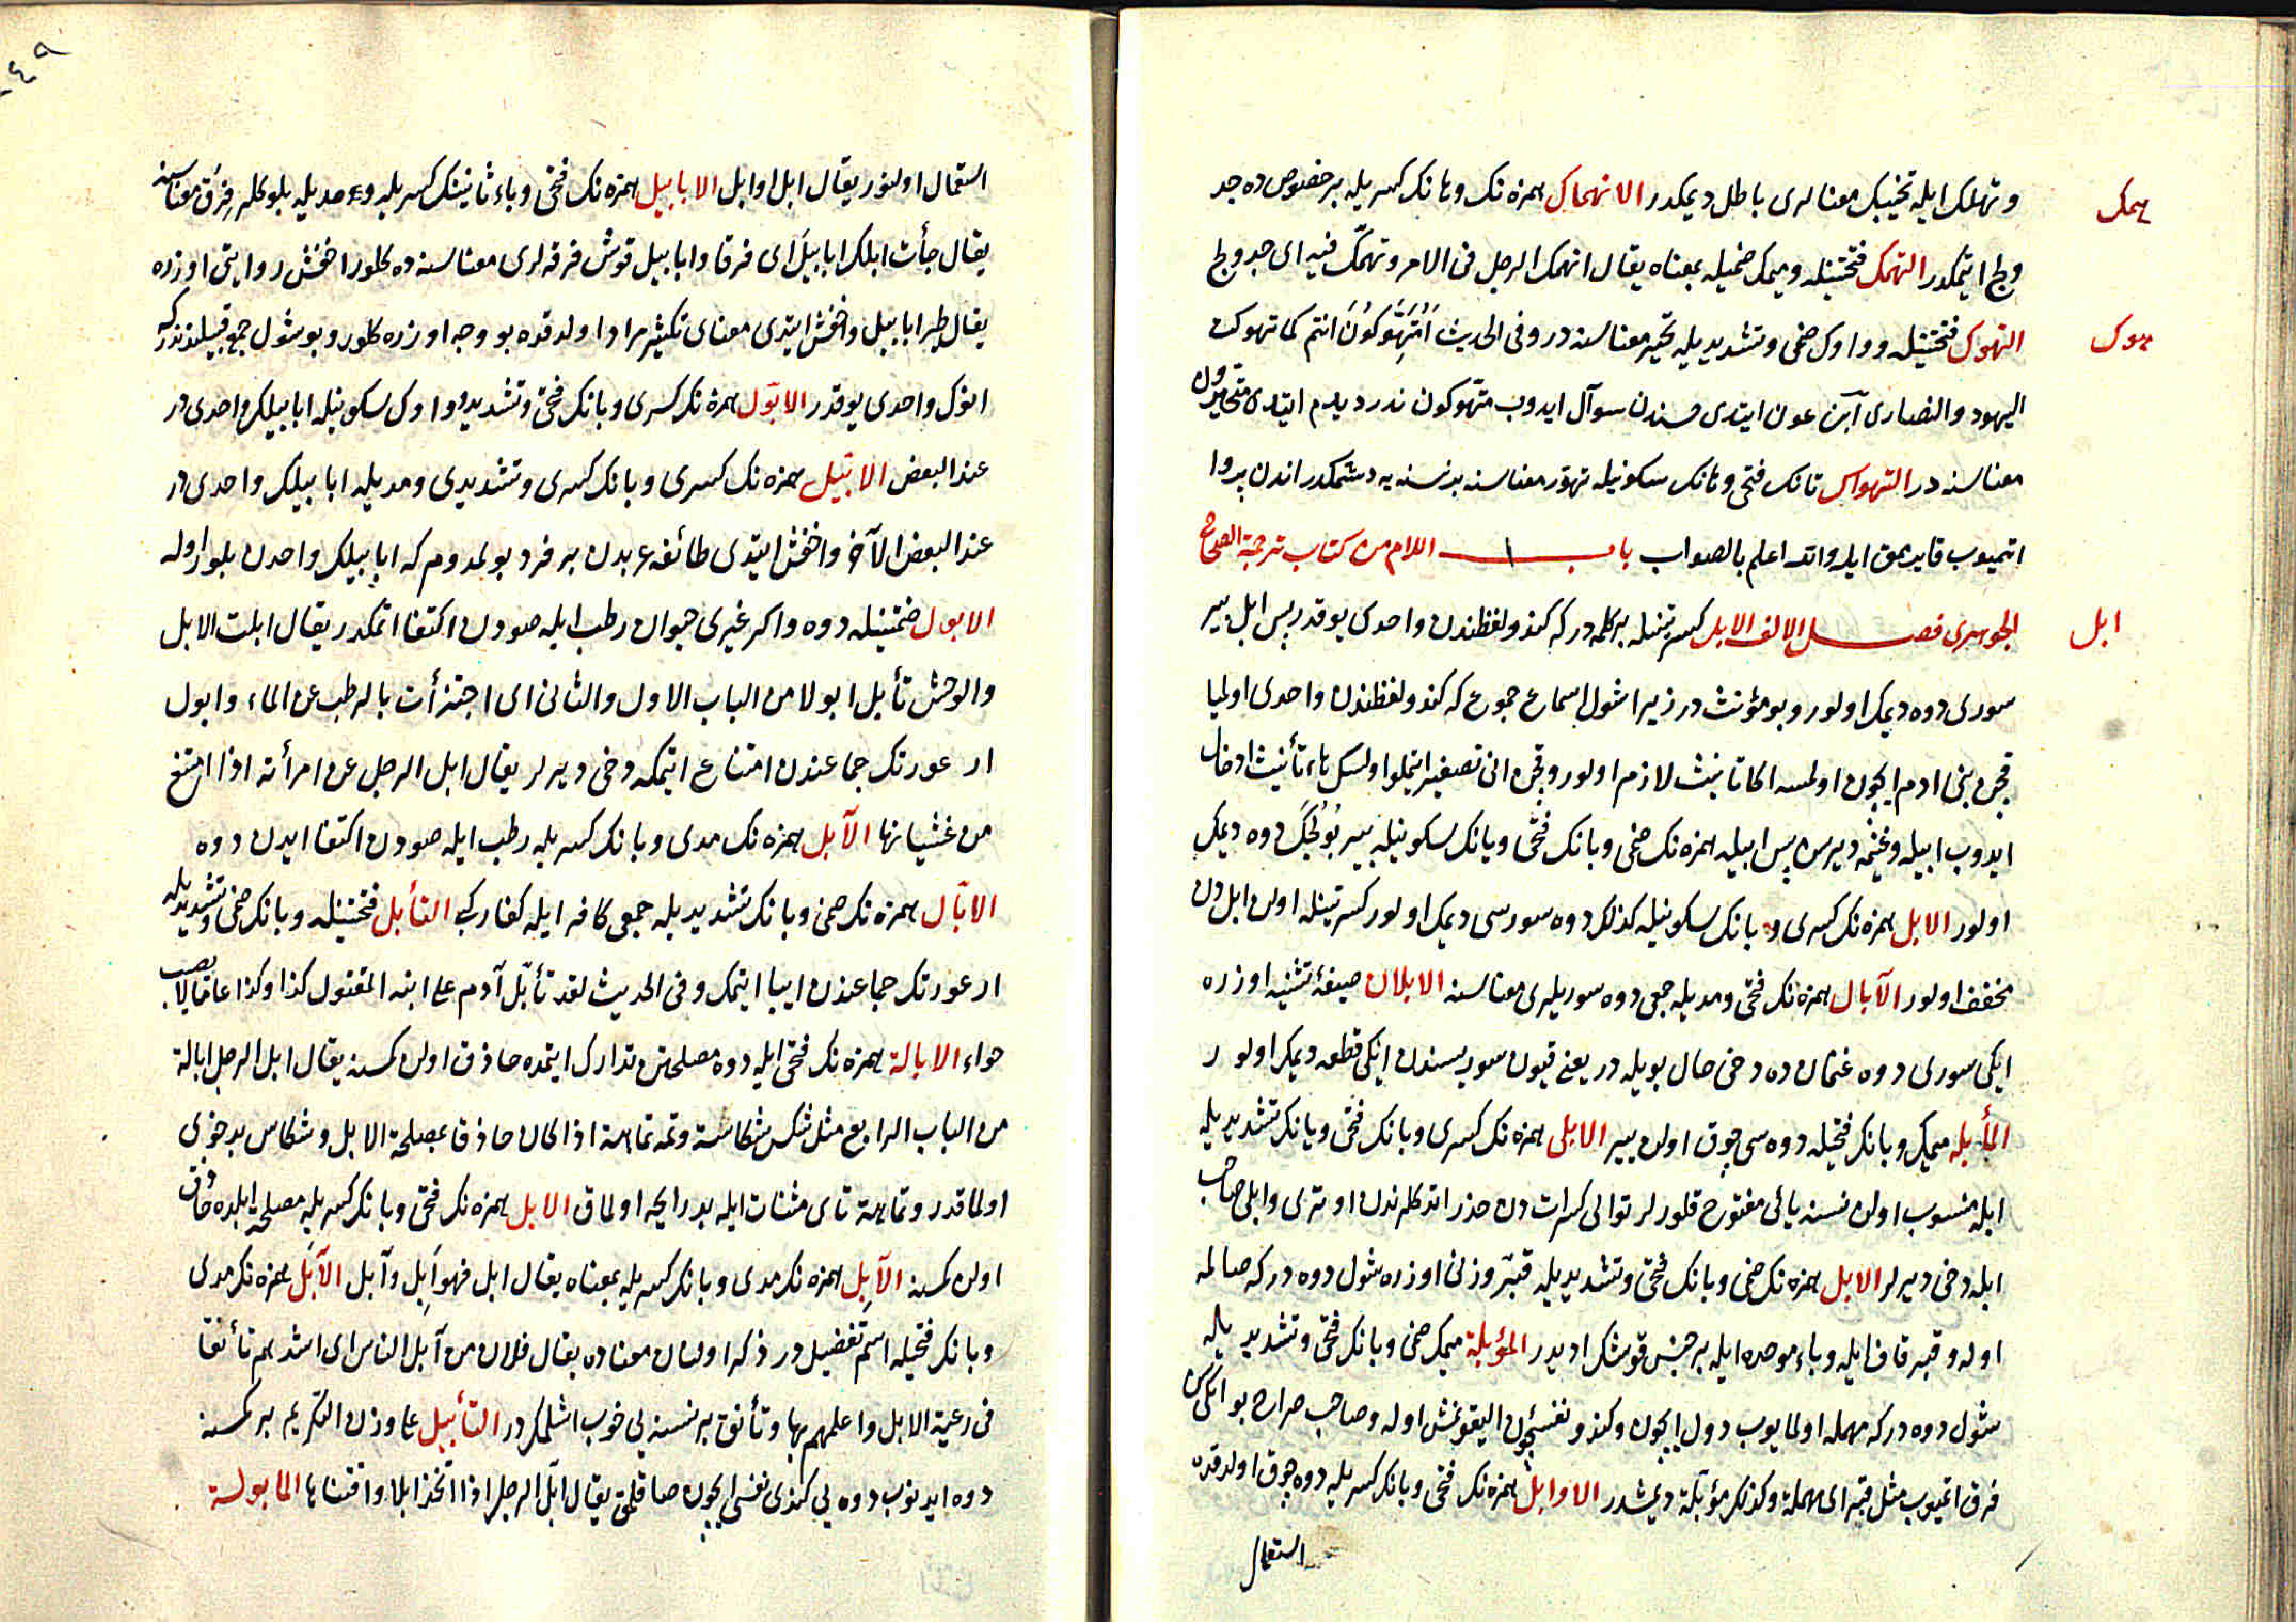 همك
و تهلك ايله تخنيك معنالرى باطل ديمكدر الانهماك همزه نك وهانك كسريله بر خصوص ده جد
ولج ايتمكدر التهمك فتحتينله وميمك ضميله بمعناه يقال انهمك الرجل فى الامر وتهمّك فيه اى جد ولج
هوك
التهوك فتحتينله وواوك ضمى وتشديديله تحير معناسنه در وفى الحديث اَمُتَهَوِّكُونَ انتم كما تهوكت
اليهود والنصارى ابن عون ايتدى حسندن سوآل ايدوب متهوكون ندر ديدم ايتدى متحيرون
معناسنه در التهواس تانك فتحى وهانك سكونيله تهور معناسنه بر نسنه يه دشمكدر اندن پروا
اتميوب قايرمق ايله والله اعلم بالصواب باب اللام من كتاب ترجمة الصحاح
ابل
الجوهرى فصل الالف الابل كسرتينله بر كلمه در كه كندو لفظندن واحدى يوقدر پس ابل بير
سورى دوه ديمك اولور وبو مؤنث در زيرا شول اسماء جموع كه كندو لفظندن واحدى اولميا
قچن بنى ادم ايچون اولمسه اكا تانيث لازم اولور وقچن انى تصغير ايتملو اولسك هاء تأنيث ادخال
ايدوب ابيله وغنيمه ديرسن پس ابيله همزه نك ضمى وبانك فتحى ويانك سكونيله بير بولجك دوه ديمك
اولور الابل همزه نك كسرى و بانك سكونيله كذلك دوه سورسى ديمك اولور كسرتينله اولن ابل دن
مخفف اولور الآبال همزه نك فتحى ومديله جمعى دوه سوريلرى معناسنه الابلان صيغۀ تثنيه اوزره
ايكى سورى دوه غنمان ده دخى حال بويله در يعنى قيون سوريسندن ايكى قطعه ديمك اولور
المأبله ميمك وبانك فتحيله دوه سى چوق اولن يير الابلى همزه نك كسرى وبانك فتحى ويانك تشديديله
ابله منسوب اولن نسنه يائى مفتوح قلورلر توالى كسرات دن حذر اتدكلرندن اوترى وابلى صاحب
ابله دخى ديرلر الابل همزه نك ضمى وبانك فتحى وتشديديله قبّر وزنى اوزره شول دوه در كه صالمه
اوله وقبر قاف ايله وباء موحده ايله بر جنس قوشك اديدر المؤبلة ميمك ضمى وبانك فتحى وتشديديله
شول دوه در كه مهمله اولمايوب دول ايچون وكندو نفسيچون اليقونمش اوله وصاحب صراح بو ايكى سن
فرق اتميوب مثل قبّر اى مهملة وكذلك مؤبّلة ديمشدر الاوابل همزه نك فتحى وبانك كسريله دوه چوق اولدقده
استعمال
استعمال اولنور يقال ابل اوابل الابابيل همزه نك فتحى وباء ثانينك كسريله ومديله بلوكلر فِرَق معناسنه
يقال جأت ابلك ابابيلَ اى فرقا وابابيل قوش فرقه لرى معناسنده كلور اخفش روايتى اوزره
يقال طير ابابيل واخفش ايتدى معناى تكثير مراد اولدقده بو وجه اوزره كلور وبو شول جمع قبيلندندر كه
انوك واحدى يوقدر الابّول همزه نك كسرى وبانك فتحى وتشديدى وواوك سكونيله ابابيلك واحدى در
عند البعض الابّيل همزه نك كسرى وبانك كسرى وتشديدى ومديله ابابيلك واحدى در
عند البعض الآخر واخفش ايتدى طائفۀ عربدن بر فرد بولمدوم كه ابابيلك واحدن بلور اوله
الابول ضمتينله دوه واكر غيرى حيوان رطب ايله صودن اكتفا اتمكدر يقال ابلت الابل
والوحش تأبل ابولا من الباب الاول والثانى اى اجتزأت بالرطب عن الماء وابول
ار عورتك جماعندن امتناع ايتمكه دخى ديرلر يقال ابل الرجل عن امرأته اذا امتنع
من غشيانها الآبل همزه نك مدى وبانك كسريله رطب ايله صودن اكتفا ايدن دوه
الابّال همزه نك ضمى وبانك تشديديله جمعى كافر ايله كفار كبى التأبل فتحتينله وبانك ضمى وتشديديله
ار عورتك جماعندن ابا ايتمك وفى الحديث لقد تأبّل آدم على ابنه المقتول كذا وكذا عاما لا يصيب
حواء الابالة همزه نك فتحى ايله دوه مصلحتن تدارك ايتمده حاذق اولن كمسنه يقال ابل الرجل ابالة
من الباب الرابع مثل شكس شكاسة وتمه تماهة اذا كان حاذقا بمصلحة الابل وشكاس بدخوى
اولماقدر وتماهة تاى مثنات ايله بد رايحه اولماق الابل همزه نك فتحى وبانك كسريله مصلحة ابلده حاذق
اولن كمسنه الآبل همزه نك مدى وبانك كسريله بمعناه يقال ابل فهو اَبِل وآبل الآبَل همزه نك مدى
وبانك فتحيله اسم تفضيل در ذكر اولنان معناده يقال فلان من آبل الناس اى اشدهم تأنقا
فى رعية الابل واعلمهم بها وتأنق بر نسنه يى خوب اشلمكدر التأبيل على وزن التكريم بر كمسنه
دوه ايدنوب دوه يى كندى نفسى ايچون صاقلمق يقال ابّل الرجل اذا اتخذ ابلا واقتناها المابولة